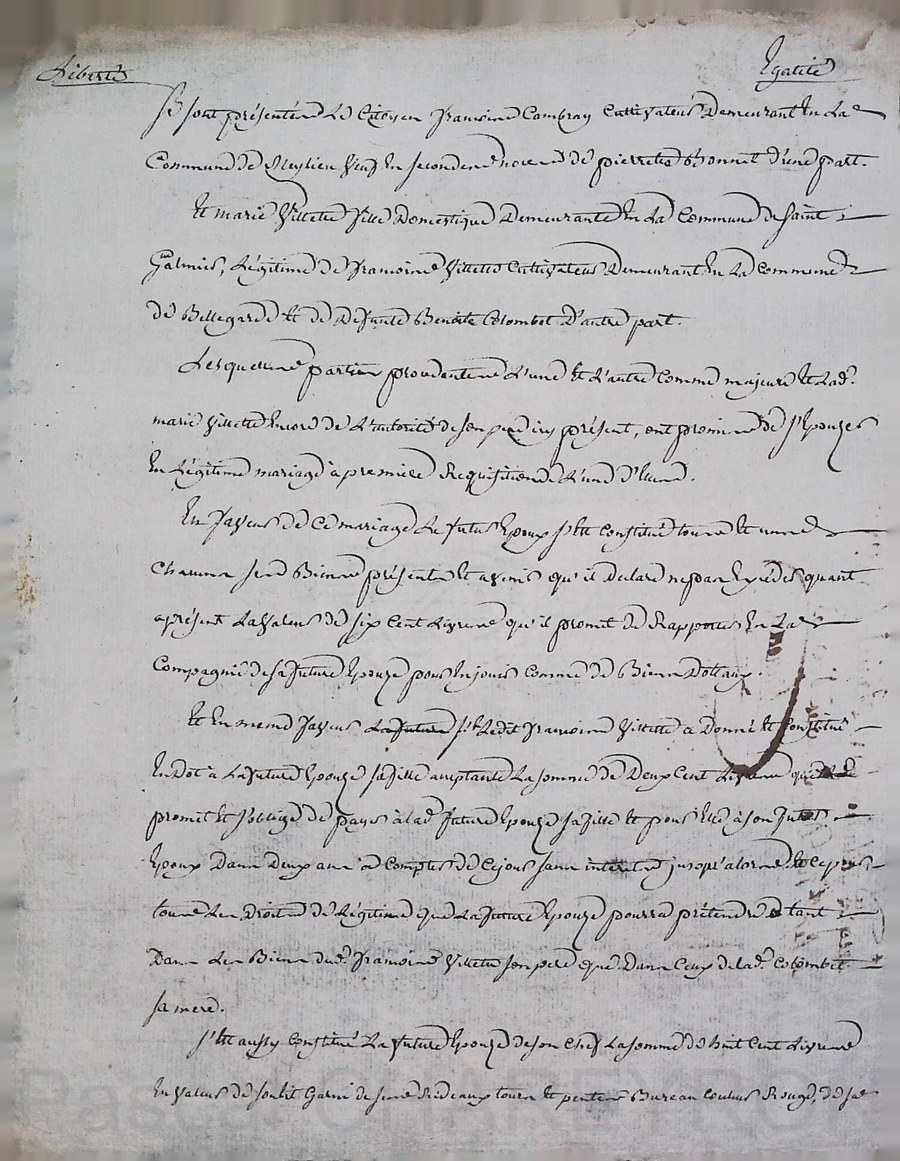 Liberté Egalité
Se sont présentés Le Citoyen françois Cambray Cultivateur Demeurant En La
Commune de Meylieu Veuf En secondes noces de pierrette Bonnet d'une part.
Et marie Villette fille Domestique Demeurante En La Commune de Saint
Galmier, Légitime de françois Villette Cultivateur Demeurant En La Commune
de Bellegarde Et de Defunte Benoite Colombet D'autre part.
Lesquelles parties procedantes L'une Et L'autre Comme majeure Et Lad.
marie Villette Encore de L'autorité de son pere icy présent, ont promis de s'Epouser
En Légitime mariage à premiere Requisition de L'un d'Eux.
En faveur de Ce mariage Le futur Epoux s'Est Constitué tous Et uns
Chacuns ses Biens présents Et avenir qu'il declare ne pas Exéder quant
apresent La valeur de six Cent Livres qu'il promet de Rapporter En La
Compagnie de sa future Epouse pour En jouir Comme de Biens Dottaux.
Et En meme faveur La future s'Est Ledit françois Villette a Donné Et Constitué
En Dot à La future Epouse sa fille acceptante La somme de Deux Cent Livres
promet Et s'oblige de payer à lad. future Epouse sa fille Et pour Elle à son futur
Epoux Dans Deux ans à Compter de Ce jour sans interets jusqu'alors Et Ce pour
tous Les Droits de Légitime que La future Epouse pourra prétendre tant
Dans Les Biens dud. françois Villette son pere que Dans Ceux de lad. Colombet
sa mere.
s'Est aussy Constitué La future Epouse de son Chef La somme de huit Cent Livres
En valeur de son lit Garni de ses Rideaux tours Et pentes Bureau Couleur Rouge, de sa